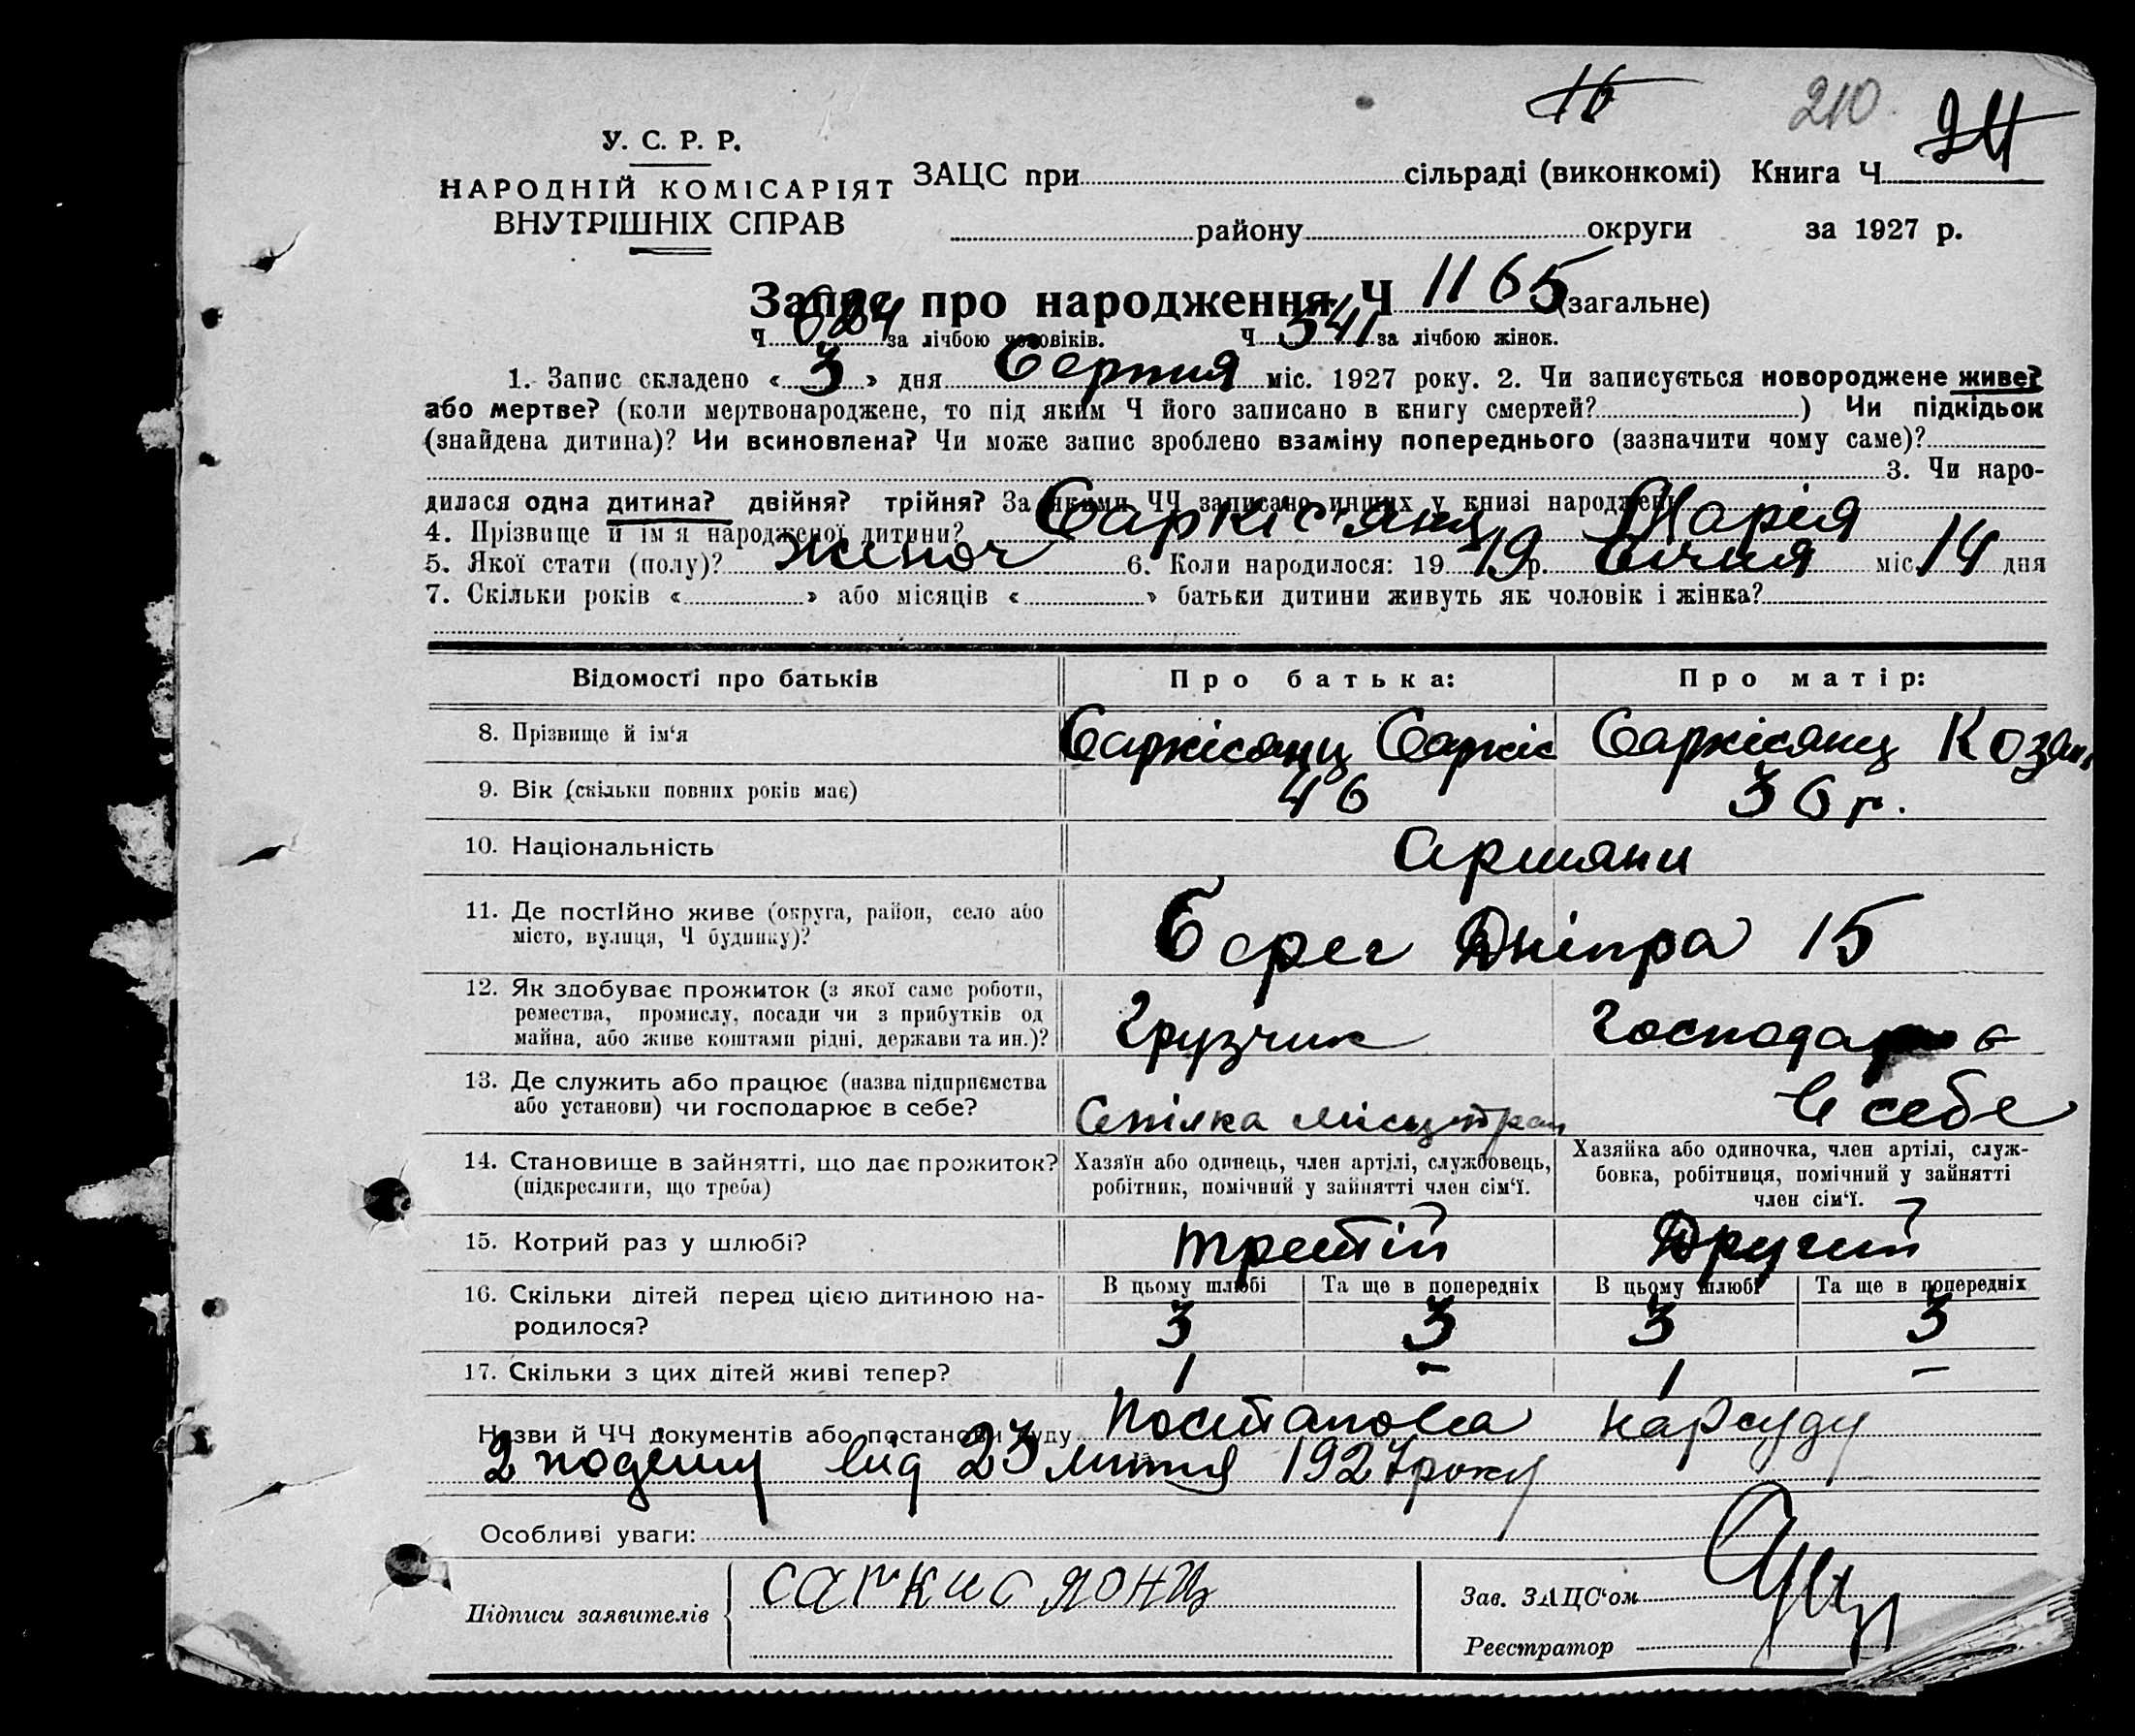 16 210 24
У. С. Р. Р.
НАРОДНІЙ КОМІСАРІЯТ
ВНУТРІШНІХ СПРАВ
ЗАЦС при сільраді (виконкомі) Книга Ч
району округи за 1927 р.
Запис про народження Ч 1165 (загальне)
Ч 624 за лічбою чоловіків. Ч 541 за лічбою жінок.
1. Запис складено «3» дня Серпня міс. 1927 року. 2. Чи записується новороджене живе?
або мертве? (коли мертвонароджене, то під яким Ч його записано в книгу смертей? ) Чи підкідьок
(знайдена дитина)? Чи всиновлена? Чи може запис зроблено взаміну попереднього (зазначити чому саме)?
3. Чи наро-
дилася одна дитина? двійня? трійня? За якими ЧЧ записано инших у книзі народжень
4. Прізвище й ім'я народженої дитини? Саркіс'янц Марія
5. Якої стати (полу)? жіноч 6. Коли народилося: 1919 р. Січня міс. 14 дня
7. Скільки років « » або місяців « » батьки дитини живуть як чоловік і жінка?
Відомості про батьків Про батька: Про матір:
8. Прізвище й ім'я Саркісянц Саркіс Саркісянц
9. Вік (скільки повних років має) 46 36 р.
10. Національність Армяни
11. Де постійно живе (округа, район, село або
місто, вулиця, Ч будинку)? Берег Дніпра 15
12. Як здобуває прожиток (з якої саме роботи,
ремества, промислу, посади чи з прибутків од
майна, або живе коштами рідні, держави та ин.)? Грузчик
13. Де служить або працює (назва підприємства
або установи) чи господарює в себе? Спілка в себе
14. Становище в зайнятті, що дає прожиток?
(підкреслити, що треба)
Хазяїн або одинець, член артілі, службовець,
робітник, помічний у зайнятті член сім'ї.
Хазяйка або одиночка, член артілі, служ-
бовка, робітниця, помічний у зайнятті
член сім'ї.
15. Котрий раз у шлюбі? третій Другий
В цьому шлюбі Та ще в попередніх В цьому шлюбі Та ще в попередніх
16. Скільки дітей перед цією дитиною на-
родилося? 3 3 3 3
17. Скільки з цих дітей живі тепер? 1 - 1 -
Назви й ЧЧ документів або постанови суду Постанова Нарсуду
2 від 23 1927 року
Особливі уваги:
Підписи заявителів саркисянц
Зав. ЗАЦС'ом
Реєстратор